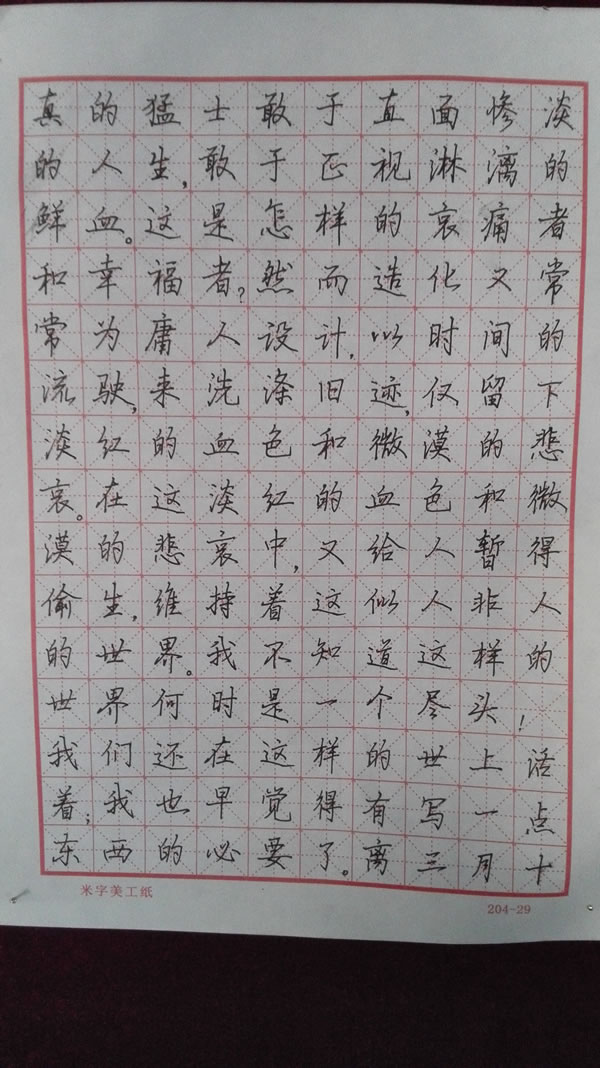 真的猛士敢于直面惨淡
的人生,敢于正视淋漓的
鲜血。这是怎样的哀痛者
和幸福者?然而造化又常
常为庸人设计,以时间的
流驶,来洗涤旧迹,仅留下
淡红的血色和微漠的悲
哀。在这淡红的血色和微
漠的悲哀中,又给人暂得
偷生,维持着这似人非人
的世界。我不知道这样的
世界何时是一个尽头!
我们还在这样的世上活
着;我也早觉得有写一点
东西的必要了。离三月十
米字美工纸
204-29